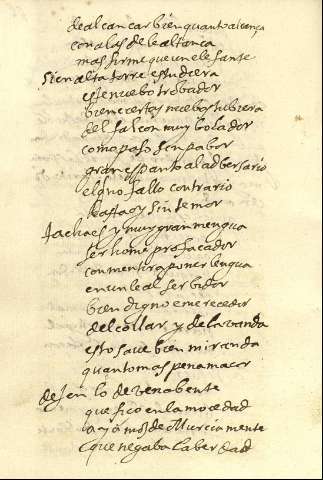 de alcançar bien quanto alcança
con alas de lealtança
mas firme que un elefante
Si en alta torre estudiera
este nuebo trobador
bien ciertas nuebas subiera
del falcon muy bolador
como paso sin pabor
gran espanto al adversario
el qno fallo contrario
basta oy sin temor
tacha es y muy gran mengua
ser home profacador
con mentira poner lengua
en un leal serbidor
bien digno e merecedor
del collar y de la vanda
esto save bien miranda
quanto mas penamacor
dejen lo de venabente
que fiço en la mocedad
a mos de Murcia mente
que negaba la berdad